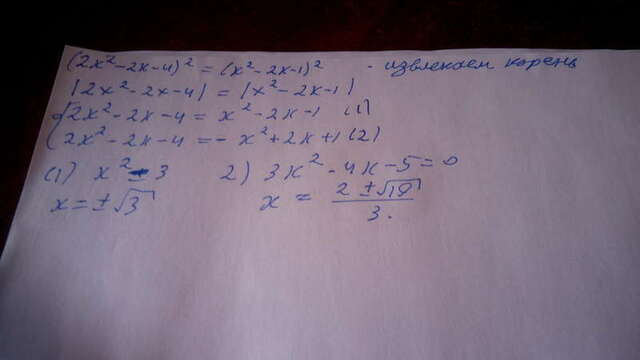 (2x² - 2x - 4)² = (x² - 2x - 1)² - извлекаем корень
|2x² - 2x - 4| = |x² - 2x - 1|
2x² - 2x - 4 = x² - 2x - 1 (1)
2x² - 2x - 4 = - x² + 2x + 1 (2)
(1) x² = 3 2) 3x² - 4x - 5 = 0
x = ±√3 x = (2 ± √19)/3.